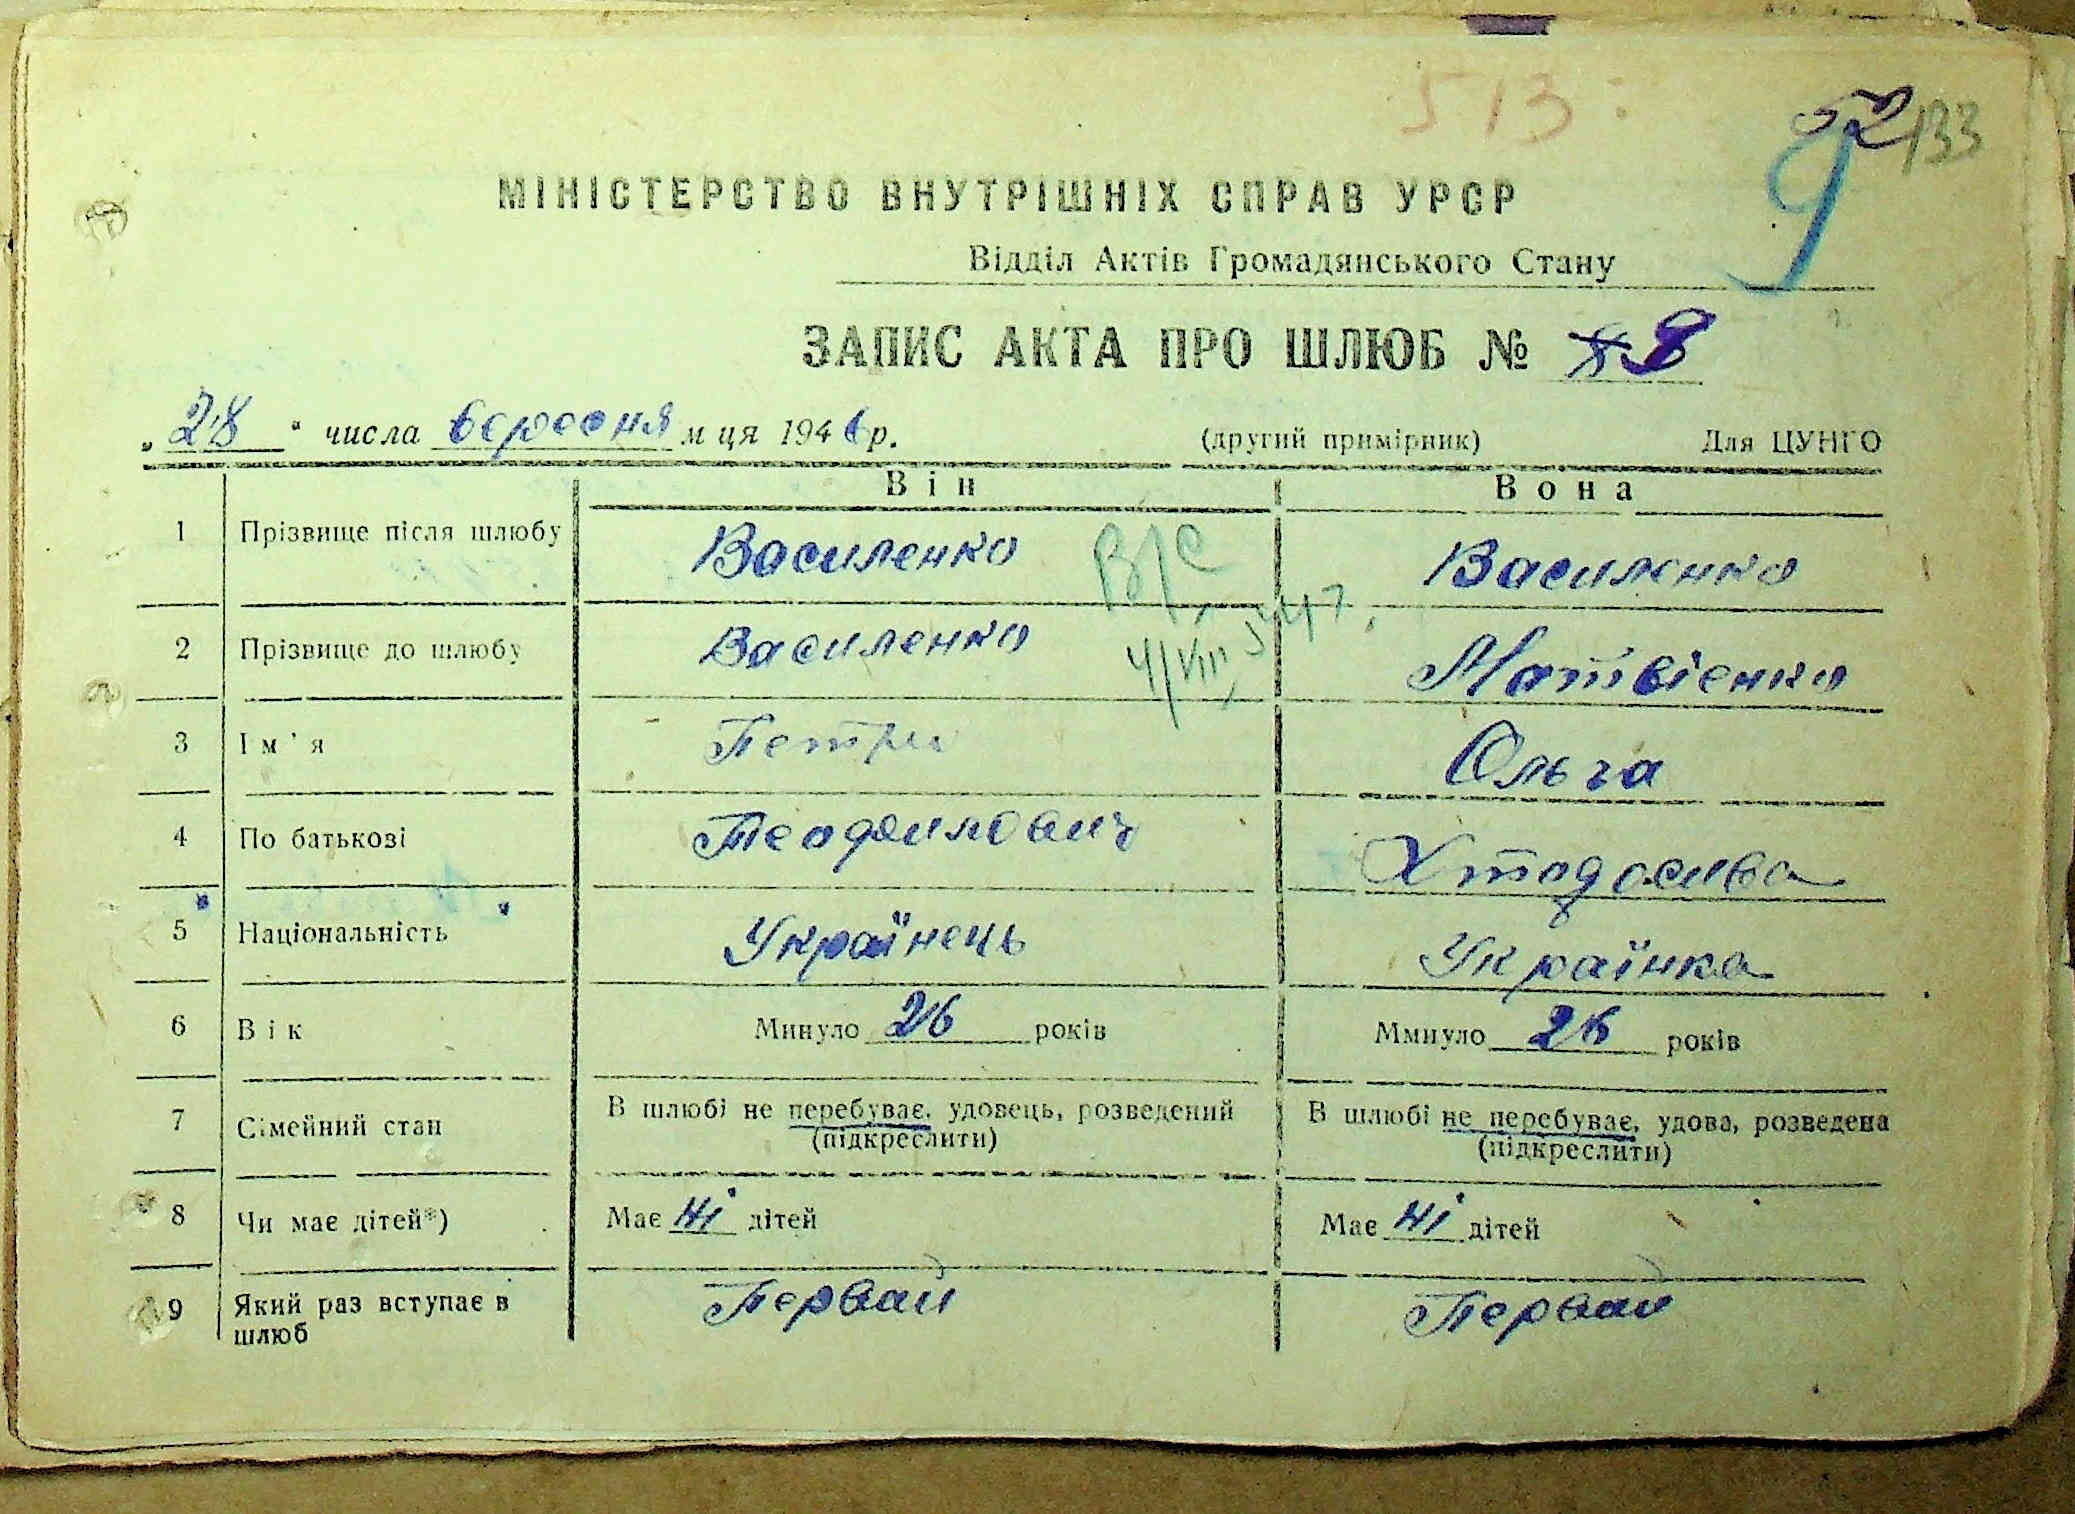 513
92 133
МІНІСТЕРСТВО ВНУТРІШНІХ СПРАВ УРСР
Відділ Актів Громадянського Стану
ЗАПИС АКТА ПРО ШЛЮБ №
„28" числа вересня м ця 1946 р. (другий примірник) Для ЦУНГО
Він Вона
1 Прізвище після шлюбу Василенко Василенко
В/С
4/VIII
2 Прізвище до шлюбу Василенко Матвієнко
3 Ім'я Петро Ольга
4 По батькові Теофилович
5 Національність Українець Українка
6 Вік Минуло 26 років Ммнуло 26 років
7 Сімейний стан В шлюбі не перебуває, удовець, розведений В шлюбі не перебуває, удова, розведена
(підкреслити) (підкреслити)
8 Чи має дітей*) Має ні дітей Має ні дітей
9 Який раз вступає в шлюб Первый Первый